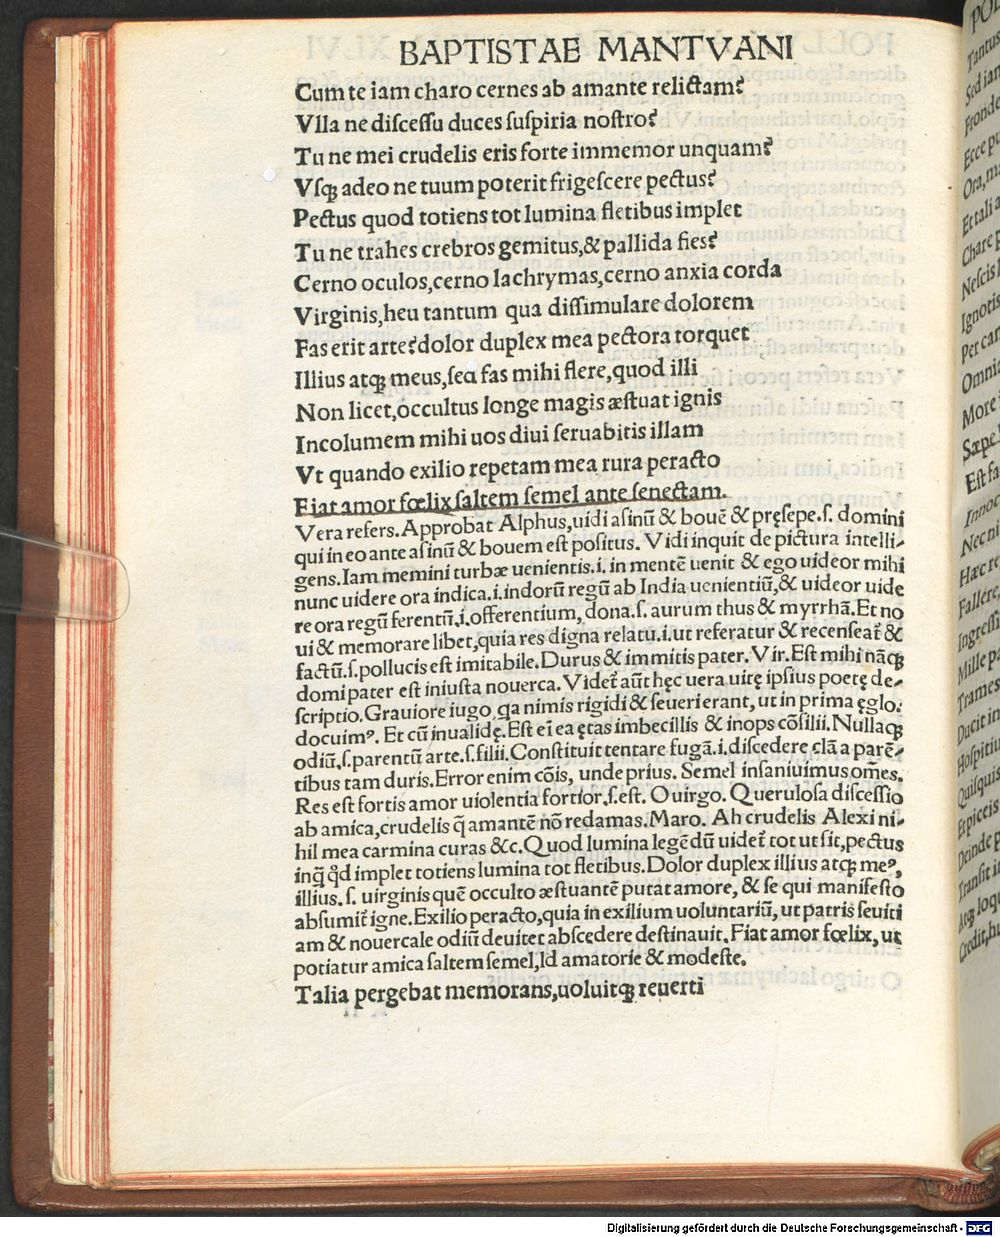 BAPTISTAE MANTVANI
Cum te iam charo cernes ab amante relictam?
Vlla ne discessu duces suspiria nostro?
Tu ne mei crudelis eris forte immemor unquam?
Vsqꝫ adeo ne tuum poterit frigescere pectus?
Pectus quod totiens tot lumina fletibus implet
Tu ne trahes crebros gemitus,& pallida fies?
Cerno oculos,cerno lachrymas,cerno anxia corda
Virginis,heu tantum qua dissimulare dolorem
Fas erit arte?dolor duplex mea pectora torquet
Illius atqꝫ meus,sed fas mihi flere,quod illi
Non licet,occultus longe magis æstuat ignis
Incolumem mihi uos diui seruabitis illam
Vt quando exilio repetam mea rura peracto
Fiat amor fœlix saltem semel ante senectam.
Vera refers. Approbat Alphus,uidi asinũ & bouẽ & pręsepe.s. domini
qui in eo ante asinũ & bouem est positus. Vidi inquit de pictura intelli-
gens.Iam memini turbæ uenientis.i. in mentẽ uenit & ego uideor mihi
nunc uidere ora indica.i.indorũ regũ ab India uenientiũ,& uideor uide
re ora regũ ferentũ.i.offerentium, dona.s. aurum thus & myrrhã.Et no
ui & memorare libet,quia res digna relatu.i.ut referatur & recenseat̃ &
factũ.s.pollucis est imitabile. Durus & immitis pater. Vir. Est mihi nãqꝫ
domi pater est iniusta nouerca. Videt̃ aũt hęc uera uitę ipsius poetę de-
scriptio.Grauiore iugo,qa nimis rigidi & seueri erant, ut in prima ęglo.
docuimꝰ. Et cũ inualidę.Est ei ea ętas imbecillis & inops cõsilii.Nullaqꝫ
odiũ,s.parentũ arte.s.filii.Constituit tentare fugã.i.discedere clã a parẽ-
tibus tam duris.Error enim cõis, unde prius. Semel insaniuimus om̃es.
Res est fortis amor uiolentia fortior.s.est. O uirgo. Querulosa discessio
ab amica,crudelis q̃ amantẽ nõ redamas. Maro. Ah crudelis Alexi ni-
hil mea carmina curas &c.Quod lumina legẽdũ uidet̃ tot ut sit,pectus
inq̃ q̃d implet totiens lumina tot fletibus. Dolor duplex illius atqꝫ meꝰ,
illius.s. uirginis quẽ occulto æstuantẽ putat amore, & se qui manifesto
absumit̃ igne.Exilio peracto,quia in exilium uoluntariũ, ut patris seuiti
am & nouercale odiũ deuitet abscedere destinauit. Fiat amor fœlix, ut
potiatur amica saltem semel,Id amatorie & modeste.
Talia pergebat memorans,uoluitqꝫ reuerti
Digitalisierung gefördert durch die Deutsche Forschungsgemeinschaft - DFG